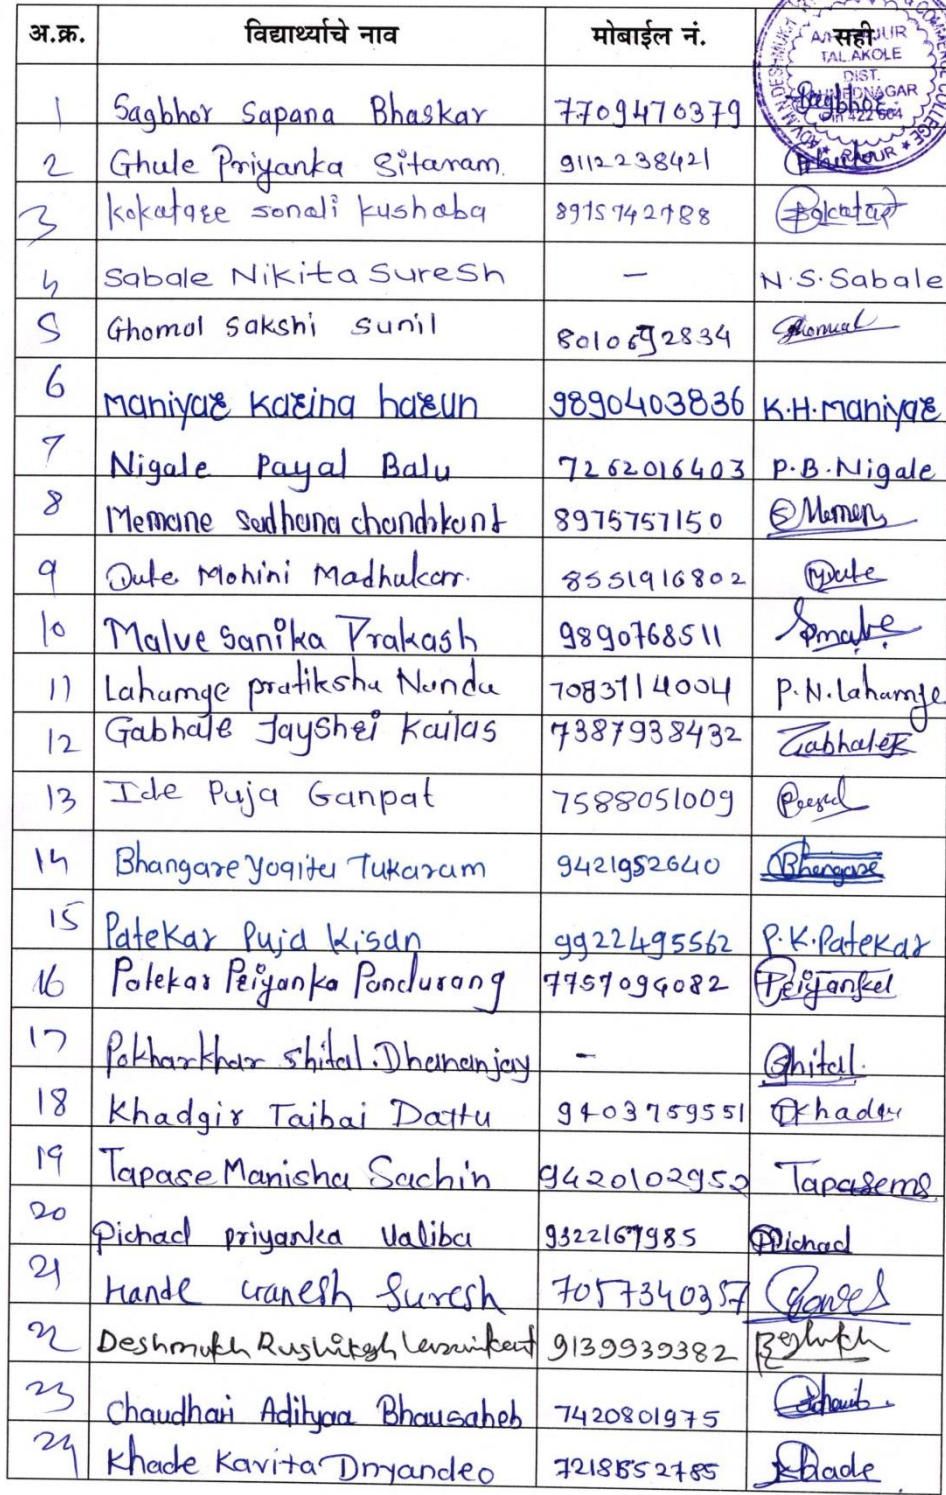 अ.क्र. विद्यार्थ्याचे नाव मोबाईल नं. सही
TAL.AKOLE
DIST.
1 Sagbhor Sapana Bhaskar 7709470379
2 Ghule Priyanka Sitaram. 9112238421
3 kokatare sonali kushaba 8975742788
4 Sabale Nikita Suresh - N.S.Sabale
5 Ghomal Sakshi Sunil Ghomal
6 Maniyar Karina harun 9890403836 K.H.Maniyar
7 Nigale Payal Balu 7262016403 P.B.Nigale
8 Memane Sadhana chandrkant 8975757150
9 Dute Mohini Madhukar. 8551916802
10 Malve Sanika Prakash 9890768511
11 Lahamge pratiksha Nandu 7083114004 P.N.lahamge
12 Gabhale Jayshri Kailas 7387938432 Gabhalek
13 Ide Puja Ganpat 7588051009
14 Bhangare Yogita Tukaram 9421952640 Bhangare
15 Patekar Puja Kisan 9922495562 P.K.Patekar
16 Patekar Priyanka Pandurang 7757094082 Priyanka
17 Pokharkhar Shital.Dhananjay - Shital.
18 Khadgir Taibai Dattu 9403759551
19 Tapase Manisha Sachin 9420102952 Tapasems
20 Pichad priyanka Valiba 9322167985 Pichad
21 Hande Ganesh Suresh 7057340357
22 Deshmukh Rushikesh 9139939382
23 Chaudhari Adityaa Bhausaheb 7420801975
24 Khade Kavita Dnyandeo Khade